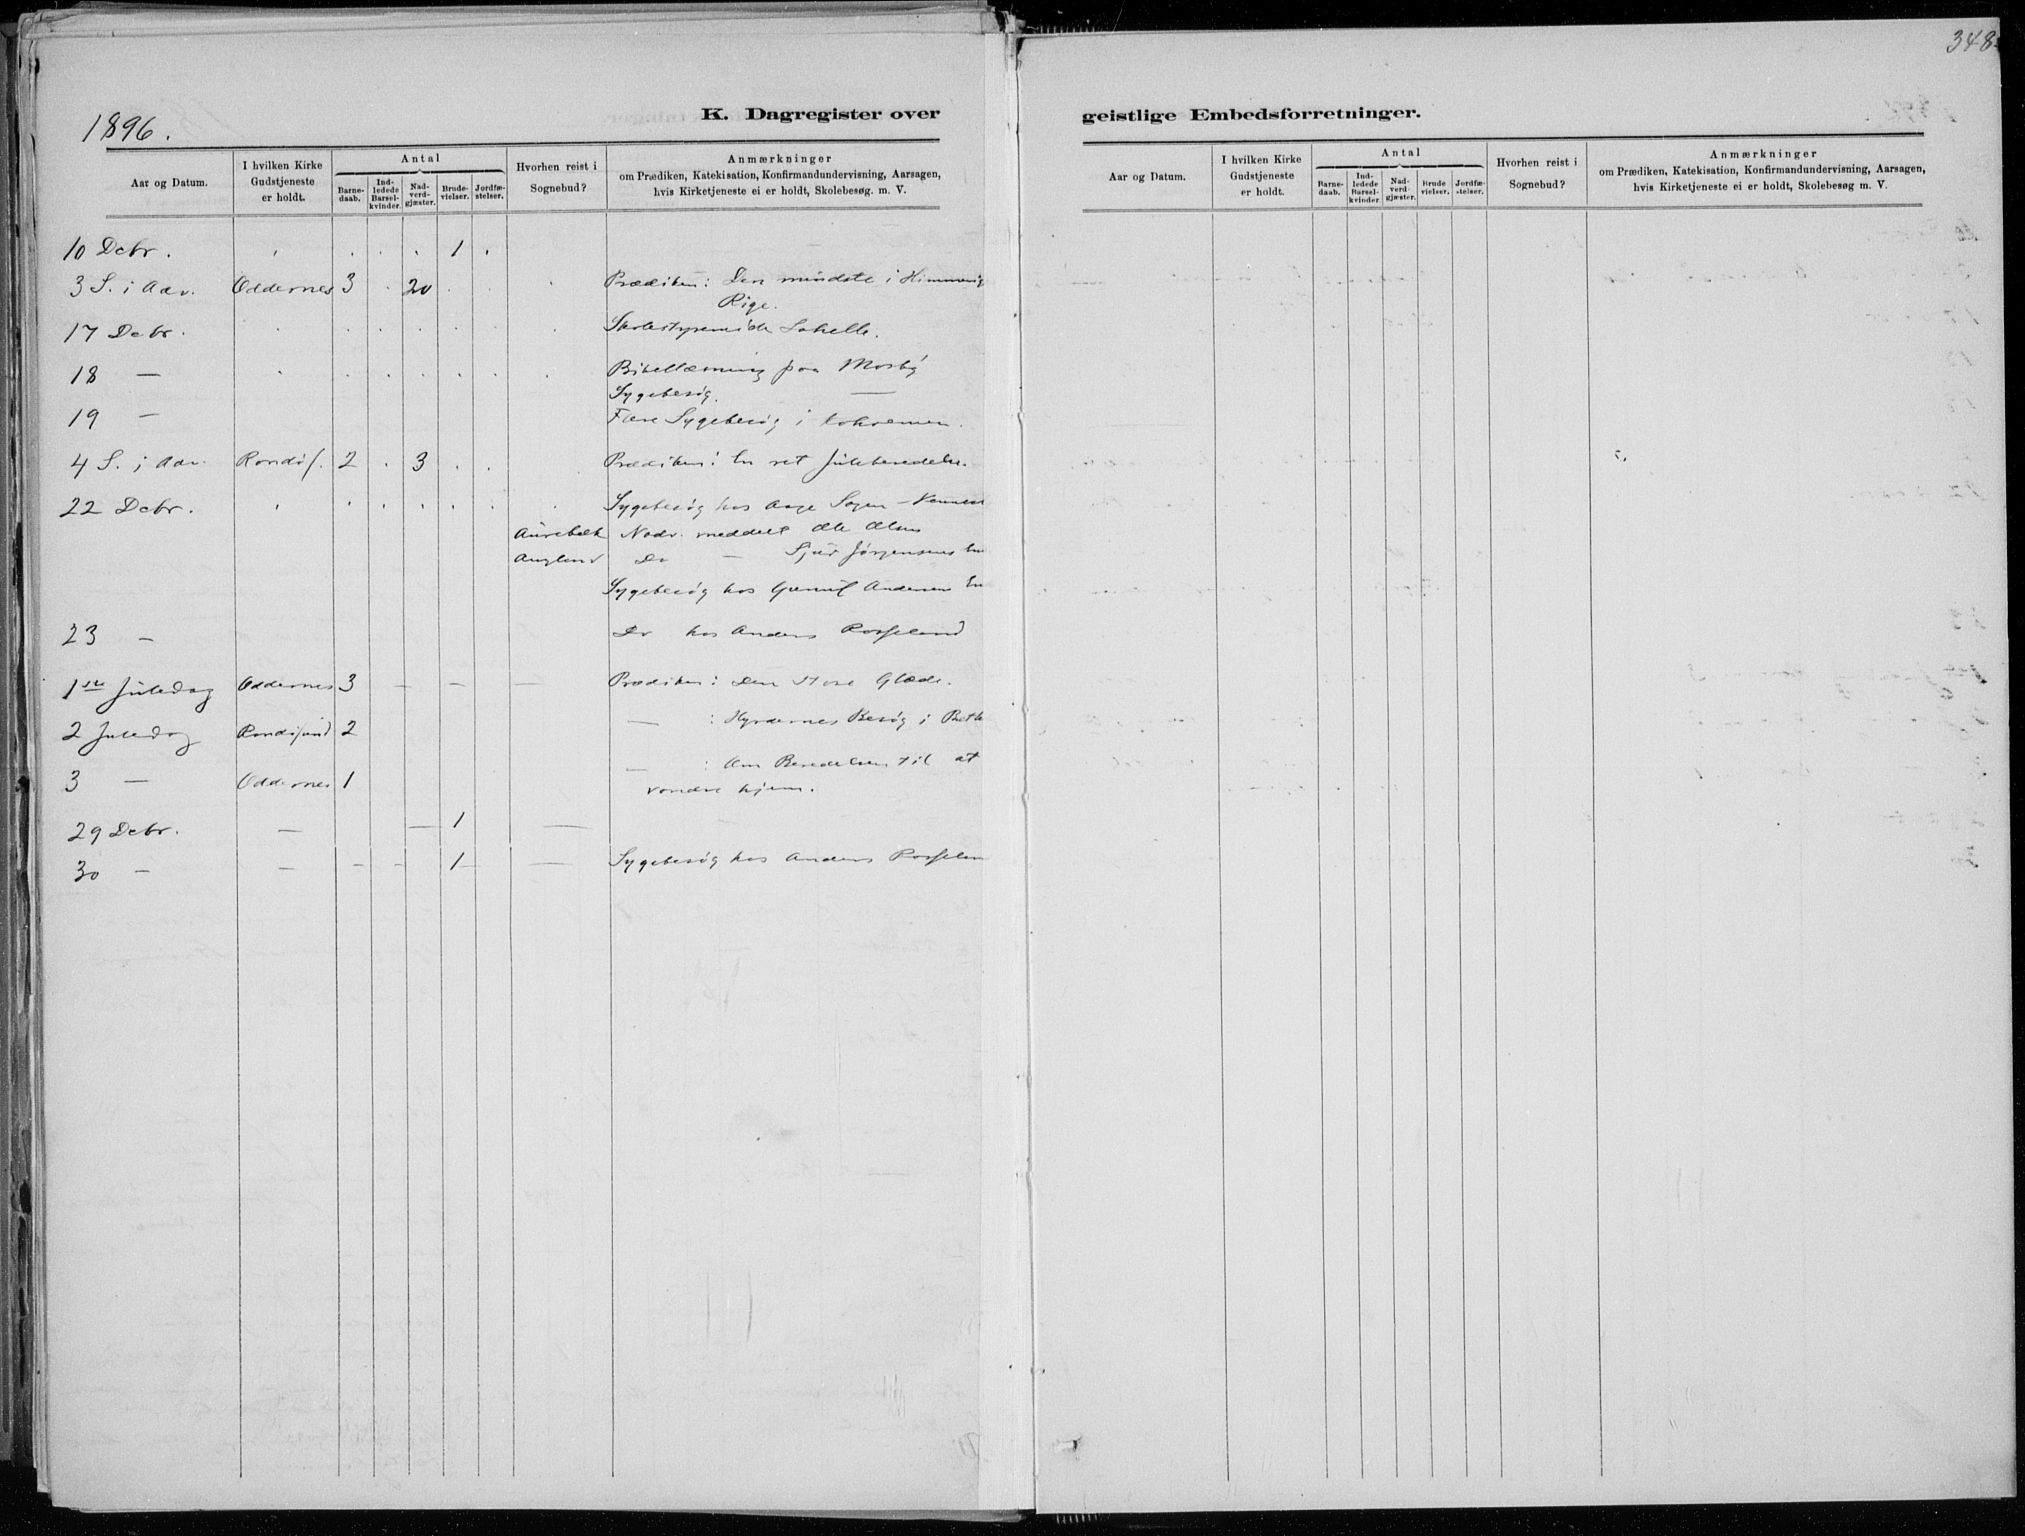 348
1896.
K. Dagregister over geistlige Embedsforretninger.
Aar og Datum.
I hvilken Kirke Gudstjeneste er holdt.
Antal
Barne-daab.
Ind-ledede Barsel-kvinder.
Nad-verd-gjæster.
Brude-vielser.
Jordfæ-stelser.
Hvorhen reist i Sognebud?
Anmærkninger
om Prædiken, Katekisation, Konfirmandundervisning, Aarsagen,
hvis Kirketjeneste ei er holdt, Skolebesøg. m. V.
10 Debr. 1
3 S. i Adv. Oddernes 3 20 Prædiken: Den mindste i
Rige.
17 Debr.
18 — Bibellæsning paa Mosby
Sygebesøg. —
19 — Flere Sygebesøg i
4 S. i Adv. Randøs. 2 3 Prædiken: En ret Juleberedelse.
22 Debr. Sygebesøg hos Aage
Aurebæk Nadv. meddelt Ole Olsen
Augland Do — Sjur Jørgensens
Sygebesøg hos Andersen
23 — Do hos Anders Rosseland
1ste Juledag Oddernes 3 — — — Prædiken: Den store Glæde.
2 Juledag Randøsund 2 — : Hyrdernes Besøg i Beth
3 — Oddernes 1 — : Om Beredelsen til at
vandre hjem.
29 Debr. — — 1 —
30 — — — — 1 — Sygebesøg hos Anders Rosselan
Aar og Datum.
I hvilken Kirke Gudstjeneste er holdt.
Antal
Barne-daab.
Ind-ledede Barsel-kvinder.
Nad-verd-gjæster.
Brude vielser.
Jordfæ-stelser.
Hvorhen reist i Sognebud?
Anmærkninger
om Prædiken, Katekisation, Konfirmandundervisning, Aarsagen,
hvis Kirketjeneste ei er holdt, Skolebesøg m. V.